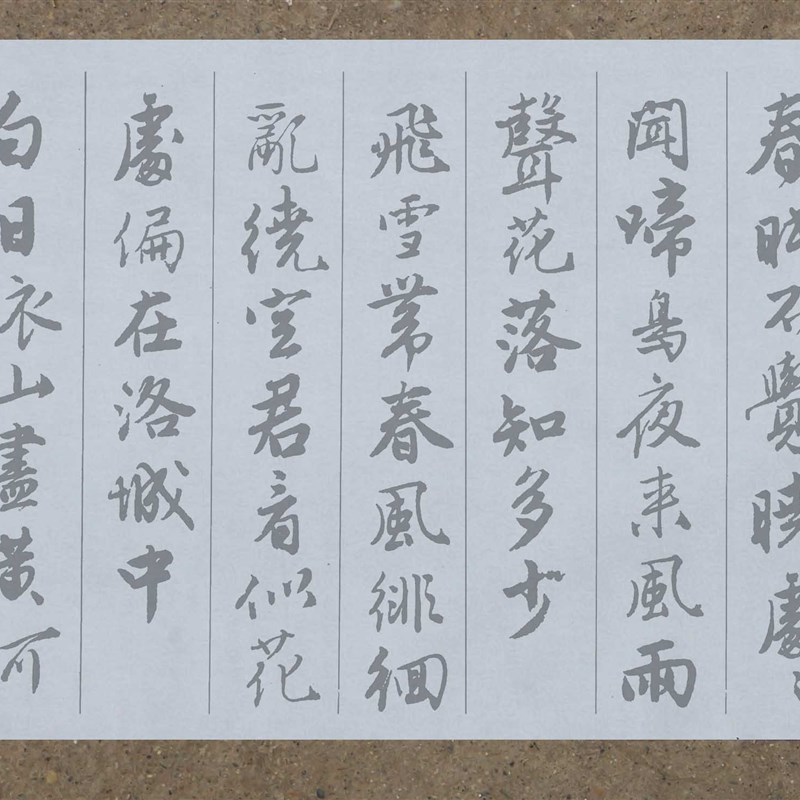 春眠不覺曉處
聞啼鳥夜来風雨
聲花落知多少
飛雪帶春風徘徊
亂繞空君看似花
處偏在洛城中
白日依山盡黃河